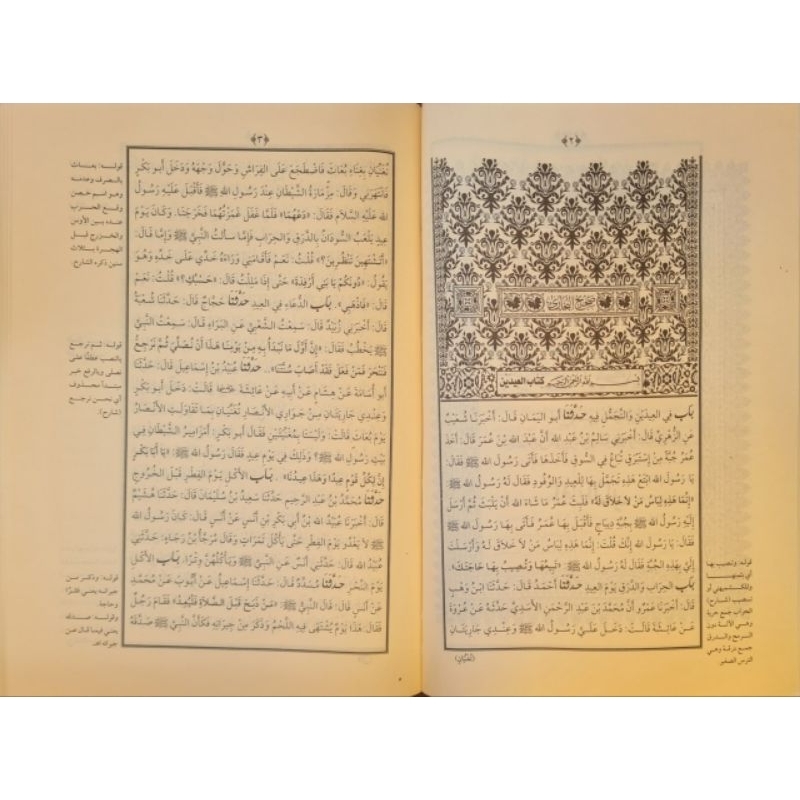 ﴿٢﴾
صحيح البخاري
بسم الله الرحمن الرحيم كتاب العيدين
باب في العيدين والتجمل فيه حدثنا أبو اليمان قال: أخبرنا شعيب
عن الزهري قال: أخبرني سالم بن عبد الله أن عبد الله بن عمر قال: أخذ
عمر جبة من إستبرق تباع في السوق فأخذها فأتى رسول الله ﷺ فقال:
يا رسول الله ابتع هذه تجمل بها للعيد والوفود فقال له رسول الله ﷺ:
«إنما هذه لباس من لا خلاق له» فلبث عمر ما شاء الله أن يلبث ثم أرسل
إليه رسول الله ﷺ بجبة ديباج فأقبل بها عمر فأتى بها رسول الله ﷺ
فقال: يا رسول الله إنك قلت: إنما هذه لباس من لا خلاق له وأرسلت
إلي بهذه الجبة فقال له رسول الله ﷺ: «تبيعها وتصيب بها حاجتك».
باب الحراب والدرق يوم العيد حدثنا أحمد قال: حدثنا ابن وهب
قال: أخبرنا عمرو أن محمد بن عبد الرحمن الأسدي حدثه عن عروة
عن عائشة قالت: دخل علي رسول الله ﷺ وعندي جاريتان
(تغنيان)
قوله: وتصيب بها
أي بثمنها
(شارح)
الحراب جمع حربة
وهي الآلة دون
الرمح والدرق
جمع درقة وهي
الترس الصغير
﴿٣﴾
تغنيان بغناء بعاث فاضطجع على الفراش وحول وجهه ودخل أبو بكر
فانتهرني وقال: مزمارة الشيطان عند رسول الله ﷺ فأقبل عليه رسول
الله عليه السلام فقال: «دعهما» فلما غفل غمزتهما فخرجتا. وكان يوم
عيد يلعب السودان بالدرق والحراب فإما سألت النبي ﷺ وإما قال:
«أتشتهين تنظرين؟» قلت: نعم فأقامني وراءه خدي على خده وهو
يقول: «دونكم يا بني أرفدة» حتى إذا مللت قال: «حسبك؟» قلت: نعم
قال: «فاذهبي». باب الدعاء في العيد حدثنا حجاج قال: حدثنا شعبة
قال: أخبرني زبيد قال: سمعت الشعبي عن البراء قال: سمعت النبي
ﷺ يخطب فقال: «إن أول ما نبدأ به من يومنا هذا أن نصلي ثم نرجع
فننحر فمن فعل فقد أصاب سنتنا».. حدثنا عبيد بن إسماعيل قال: حدثنا
أبو أسامة عن هشام عن أبيه عن عائشة قالت: دخل أبو بكر
وعندي جاريتان من جواري الأنصار تغنيان بما تقاولت الأنصار
يوم بعاث قالت: وليستا بمغنيتين فقال أبو بكر: أمزامير الشيطان في
بيت رسول الله ﷺ؟ وذلك في يوم عيد فقال رسول الله ﷺ: «يا أبا بكر
إن لكل قوم عيدا وهذا عيدنا».. باب الأكل يوم الفطر قبل الخروج
حدثنا محمد بن عبد الرحيم حدثنا سعيد بن سليمان قال: حدثنا هشيم
قال: أخبرنا عبيد الله بن أبي بكر بن أنس عن أنس قال: كان رسول الله
ﷺ لا يغدو يوم الفطر حتى يأكل تمرات وقال مرجأ بن رجاء: حدثني
عبيد الله قال: حدثني أنس عن النبي ﷺ ويأكلهن وترا. باب الأكل
يوم النحر حدثنا مسدد قال: حدثنا إسماعيل عن أيوب عن محمد
عن أنس قال: قال النبي ﷺ: «من ذبح قبل الصلاة فليعد» فقام رجل
فقال: هذا يوم يشتهى فيه اللحم وذكر من جيرانه فكأن النبي ﷺ صدقه
قوله: بعاث
بالصرف وعدمه
وهو اسم حصن
وقع الحرب
عنده بين الأوس
والخزرج قبل
الهجرة بثلاث
سنين ذكره الشارح.
قوله: ثم نرجع
بالنصب عطفا على
نصلي وبالرفع خبر
مبتدأ محذوف
أي نحن نرجع
(شارح)
قوله: وذكر من
جيرانه يعني فقرا
وحاجة
وقوله: صدقه
يعني فيما قال عن
جيرانه اهـ